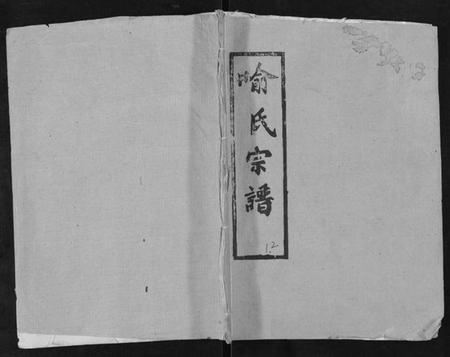 喻氏宗譜
12